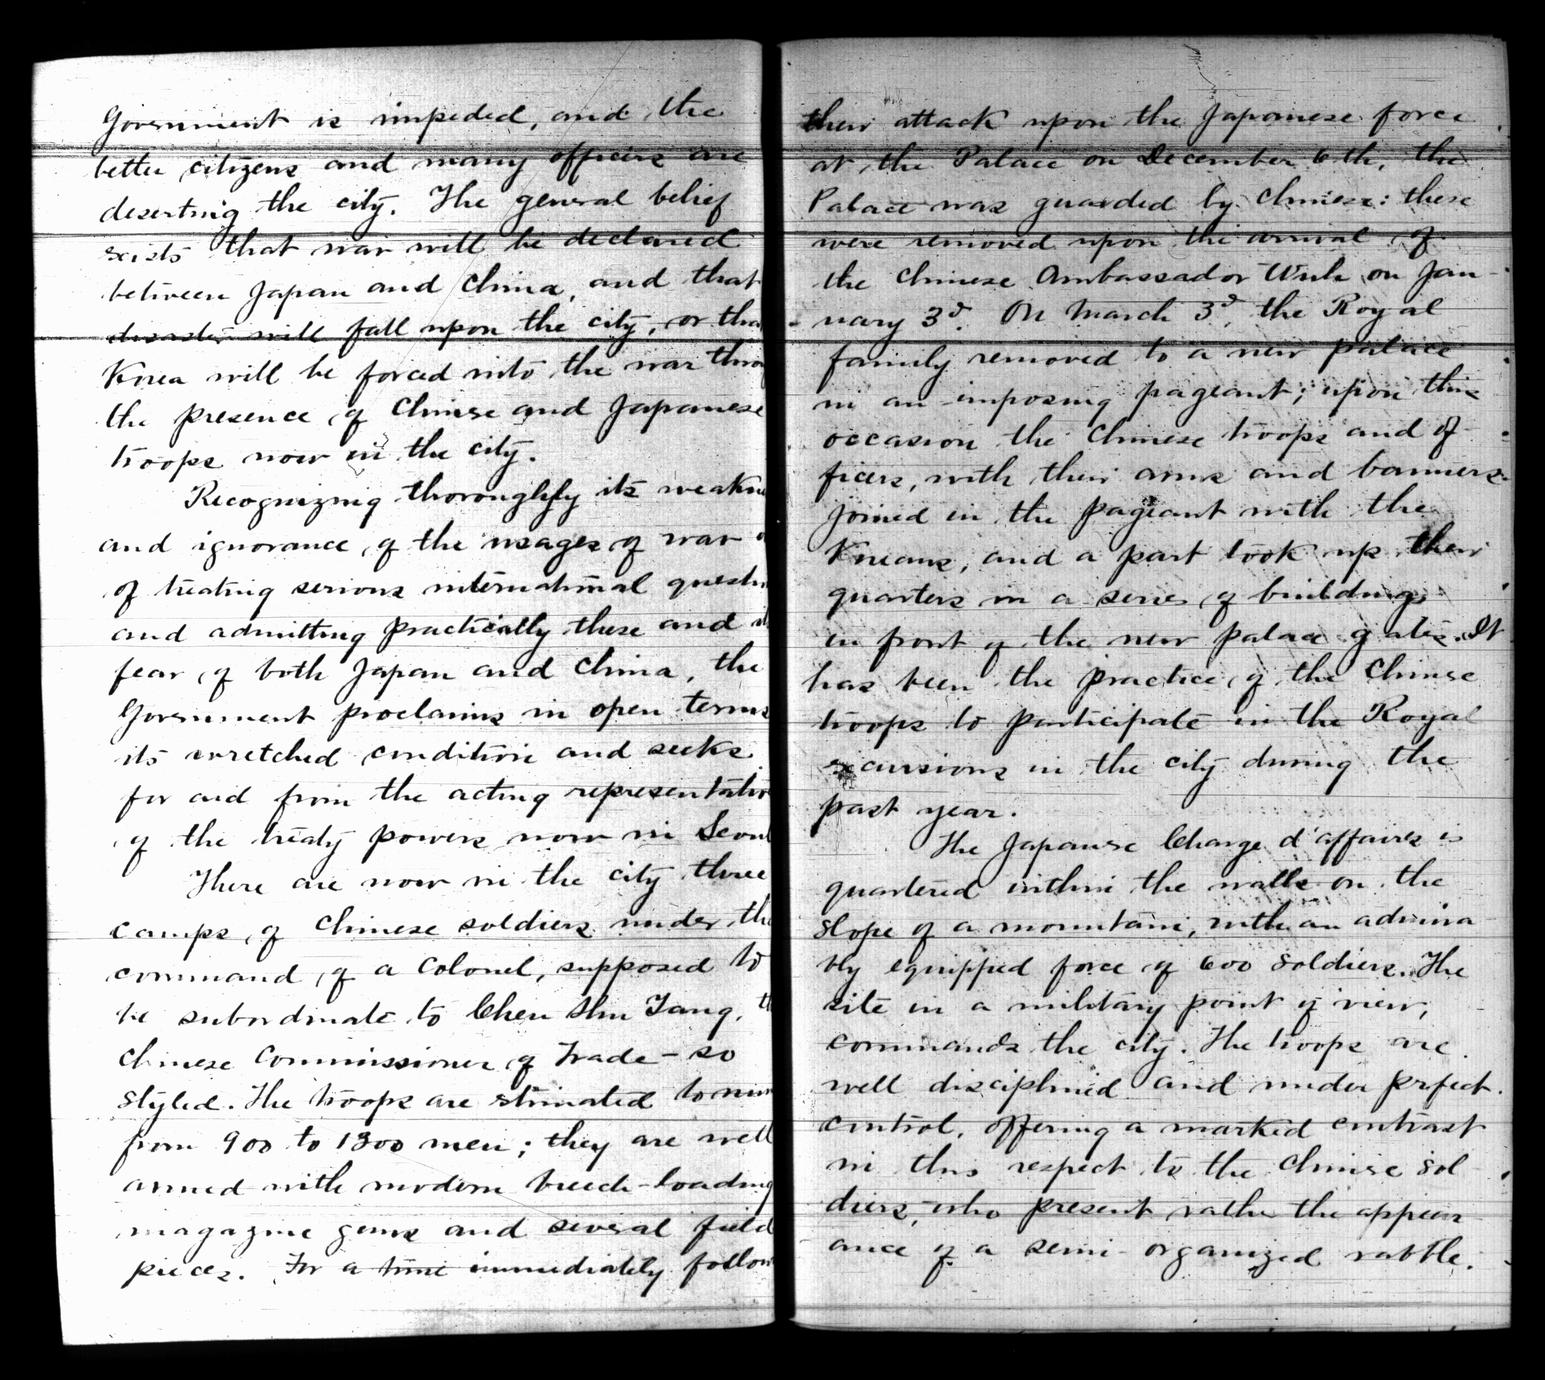 Government is impeded, and the
better citizens and many officers are
deserting the city. The general belief
exists that war will be declared
between Japan and China, and that
disaster will fall upon the city, or tha
Korea will be forced into the war throu
the presence of Chinese and Japanese
troops now in the city.
Recognizing thoroughly its weakne
and ignorance of the usages of war
of treating serious international questi
and admitting practically these and
fear of both Japan and China, the
Government proclaims in open terms
its wretched condition and seeks
for aid from the acting representativ
of the treaty powers now in Seoul
There are now in the city three
camps of Chinese soldiers under the
command of a Colonel, supposed to
be subordinate to Chen Shu Tang, th
Chinese Commissioner of Trade - so
styled. The troops are estimated to num
from 900 to 1300 men; they are well
armed with modern breech-loading
magazine guns and several field
pieces. For a time immediately follow
their attack upon the Japanese force
at the Palace on December 6th, the
Palace was guarded by Chinese: these
were removed upon the arrival of
the Chinese Ambassador Wuh on Jan-
uary 3d. On March 3d, the Royal
family removed to a new palace
in an imposing pageant; upon this
occasion the Chinese troops and of
ficers, with their arms and banners
joined in the pageant with the
Koreans, and a part took up their
quarters in a series of buildings
in front of the new palace gates. It
has been the practice of the Chinese
troops to participate in the Royal
excursions in the city during the
past year.
The Japanese Charge d'affaires is
quartered within the walls on the
slope of a mountain, with an admira
bly equipped force of 600 soldiers. The
site in a military point of view,
commands the city. The troops are
well disciplined and under perfect
control, offering a marked contrast
in this respect to the Chinese sol
diers, who present rather the appear
ance of a semi-organized rabble.